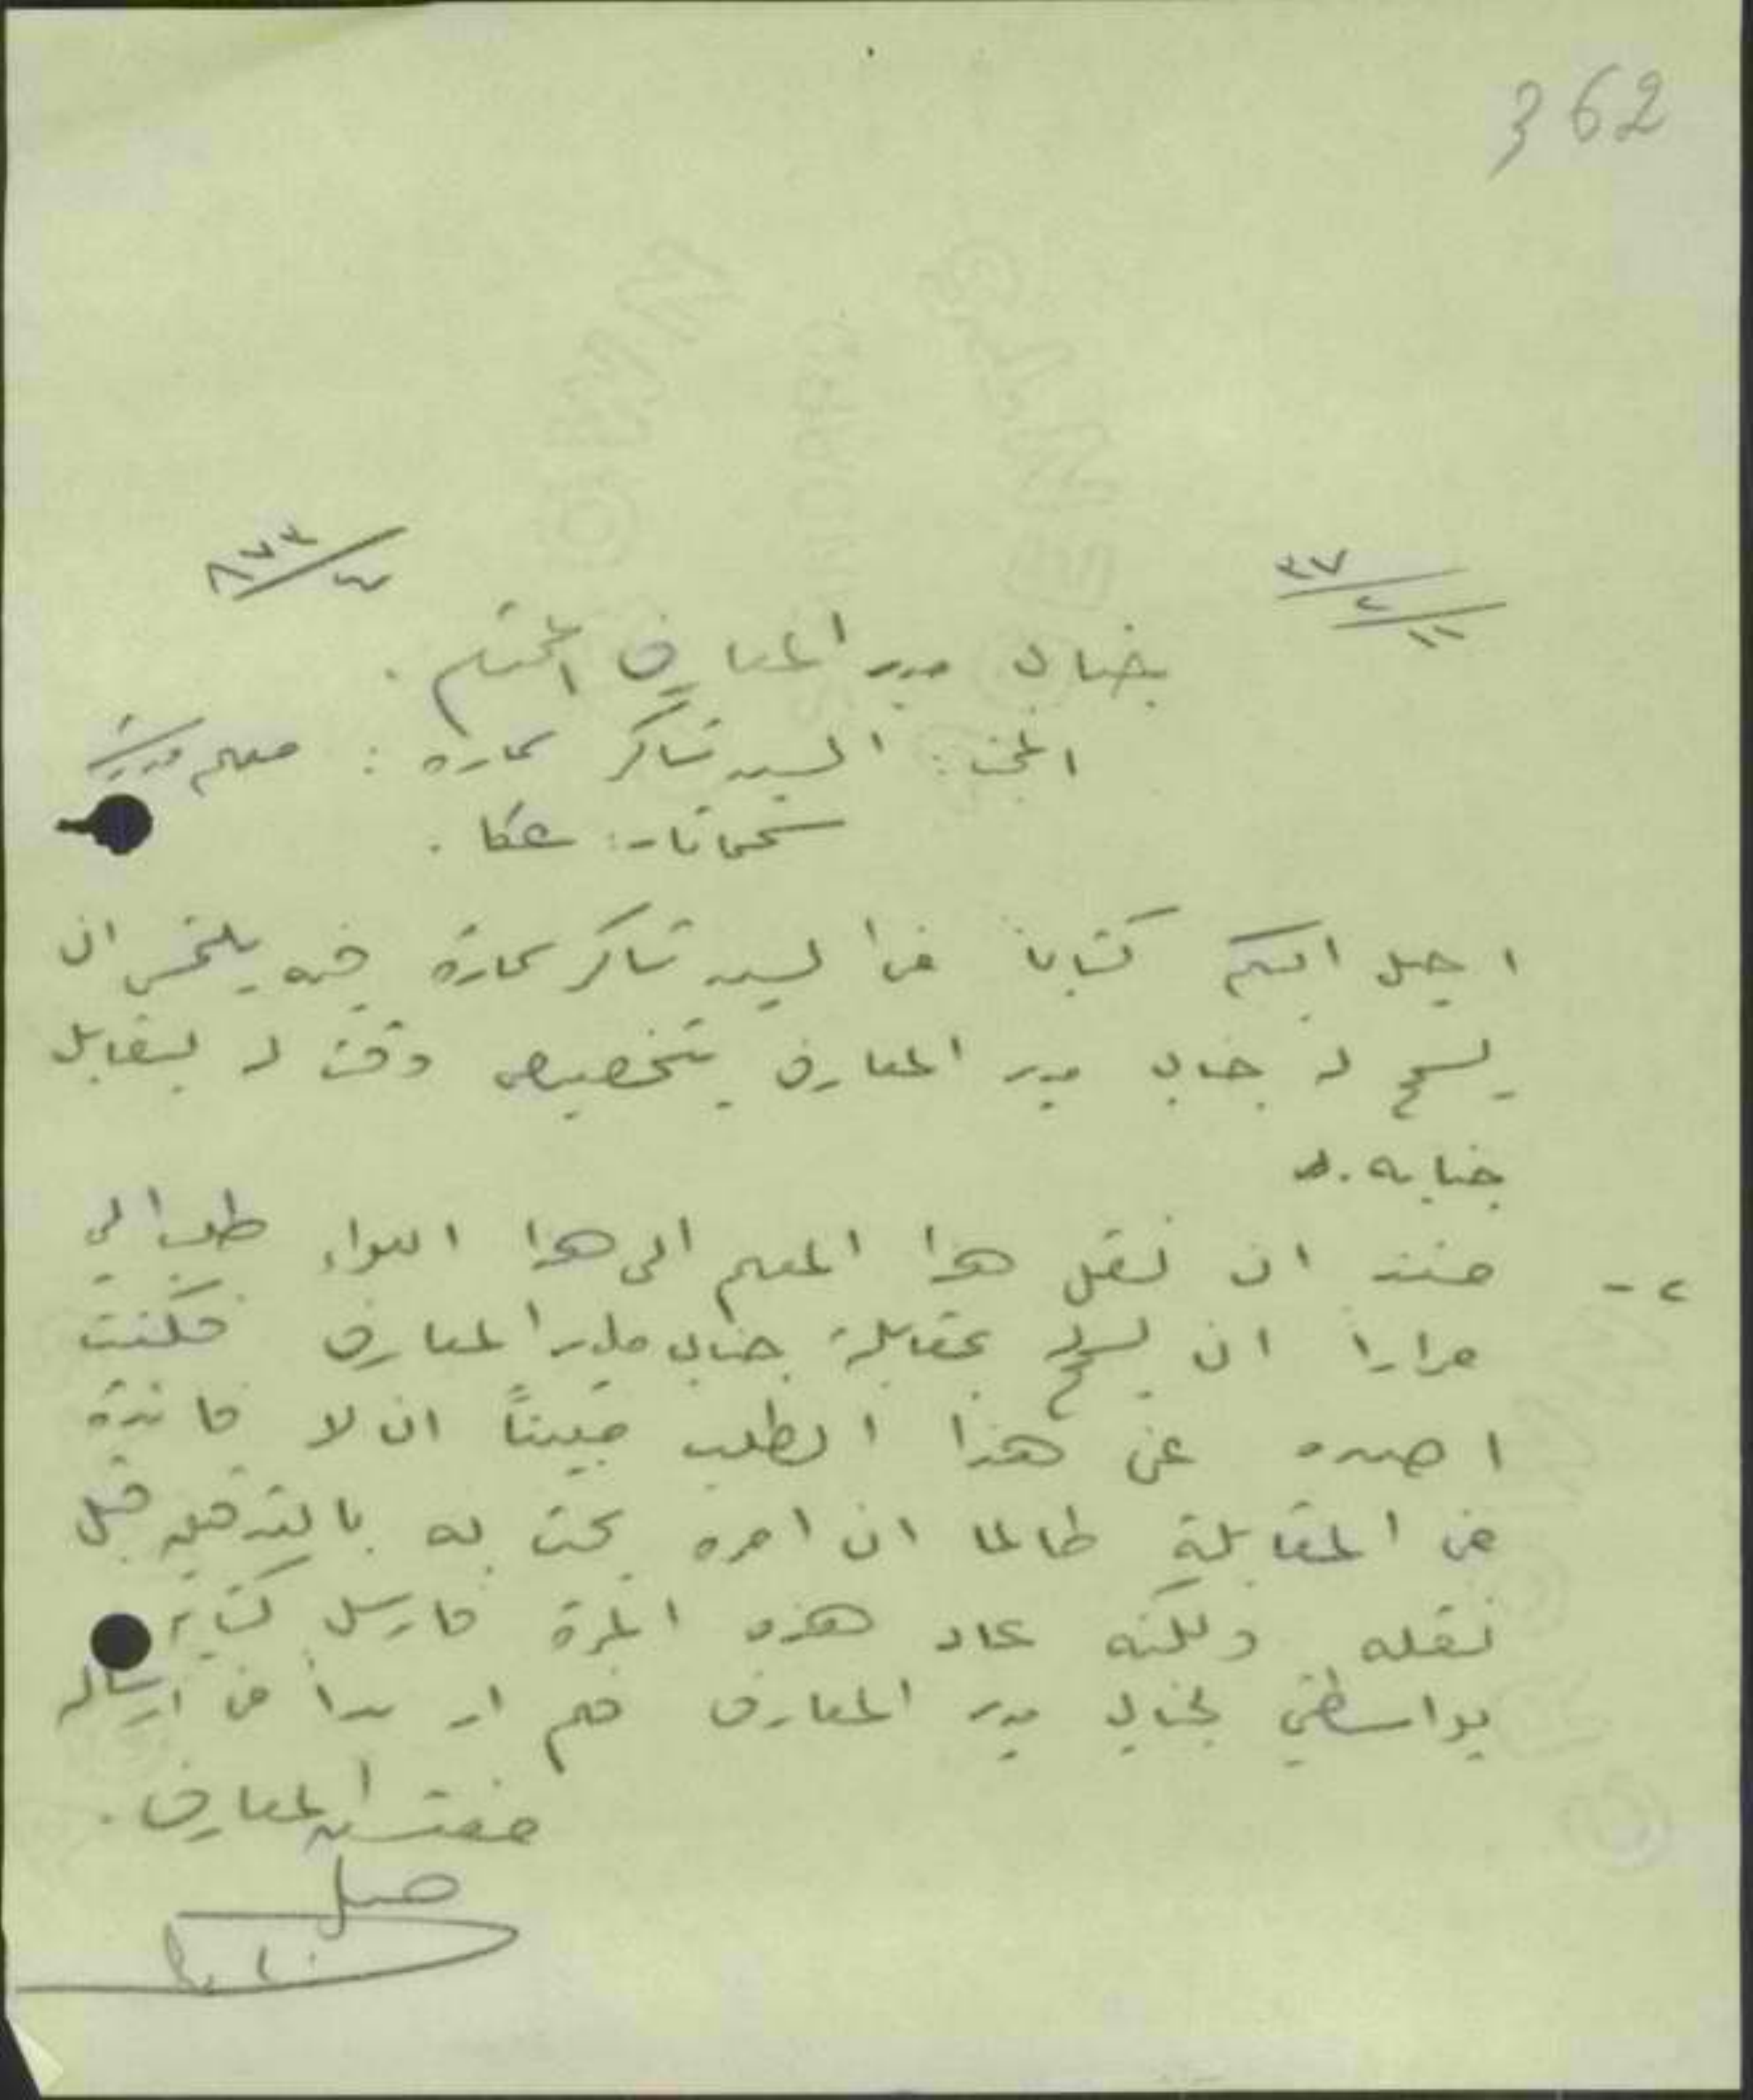 362
٨٧٣/٤
٣٧/٢/١١
جناب مدير المعارف المحترم .
البحث : السيد شاكر عماره : معلم مدرسة
سحماتا - : عكا .
احيل اليكم كتابا من السيد شاكر عمارة فيه يلتمس ان
يسمح له جناب مدير المعارف بتخصيص وقت له ليقابل
جنابه .
٢ - منذ ان نقل هذا المعلم الى هذا اللواء طلب الي
مرارا ان يسمح له بمقابلة جناب مدير المعارف فكنت
اصده عن هذا الطلب مبيناً ان لا فائدة
من المقابلة طالما ان امره بحث به بالتدقيق قبل
نقله ولكنه عاد هذه المرة فارسل كتابه
بواسطتي لجناب مدير المعارف فلم ار بدا من ارساله
مفتش المعارف .